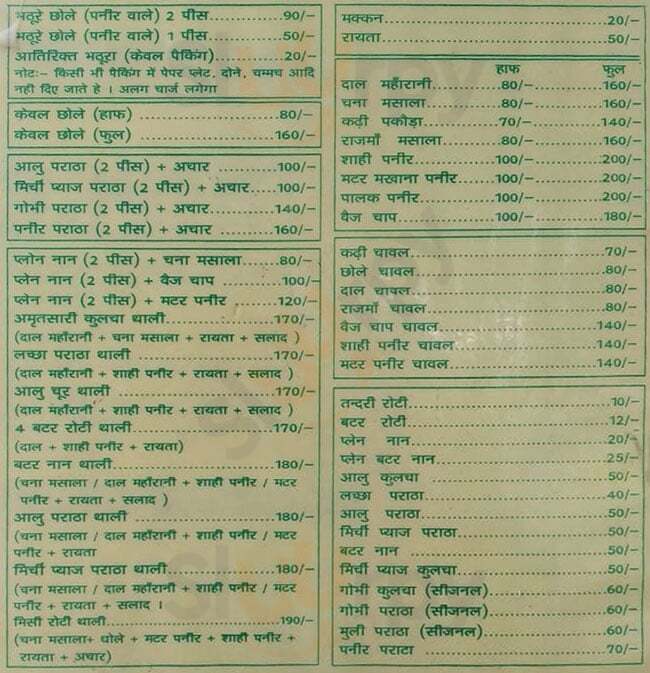 भठूरे छोले (पनीर वाले) 2 पीस.....90/-
भठूरे छोले (पनीर वाले) 1 पीस.....50/-
अतिरिक्त भठूरा (केवल पैकिंग).....20/-
नोटः- किसी भी पैकिंग में पेपर प्लेट, दोने, चम्मच आदि
नही दिए जाते हे । अलग चार्ज लगेगा
केवल छोले (हाफ).....80/-
केवल छोले (फुल).....160/-
आलु पराठा (2 पीस) + अचार.....100/-
मिर्ची प्याज पराठा (2 पीस) + अचार.....100/-
गोभी पराठा (2 पीस) + अचार.....140/-
पनीर पराठा (2 पीस) + अचार.....160/-
प्लोन नान (2 पीस) + चना मसाला.....80/-
प्लेन नान (2 पीस) + वैज चाप.....100/-
प्लेन नान (2 पीस) + मटर पनीर.....120/-
अमृतसारी कुलचा थाली.....170/-
(दाल महाँरानी + चना मसाला + रायता + सलाद )
लच्छा पराठा थाली.....170/-
(दाल महाँरानी + शाही पनीर + रायता + सलाद )
आलु चूर थाली.....170/-
(दाल महाँरानी + शाही पनीर + रायता + सलाद )
4 बटर रोटी थाली.....170/-
(दाल + शाही पनीर + रायता)
बटर नान थाली.....180/-
(चना मसाला / दाल महाँरानी + शाही पनीर / मटर
पनीर + रायता + सलाद )
आलु पराठा थाली.....180/-
(चना मसाला / दाल महाँरानी + शाही पनीर / मटर
पनीर + रायता
मिर्ची प्याज पराठा थाली.....180/-
(चना मसाला / दाल महाँरानी + शाही पनीर / मटर
पनीर + रायता + सलाद ।
मिसी रोटी थाली.....190/-
(चना मसाला+ धोले + मटर पनीर + शाही पनीर +
रायता + अचार)
मक्कन.....20/-
रायता.....50/-
हाफ फुल
दाल महाँरानी.....80/-.....160/-
चना मसाला.....80/-.....160/-
कढ़ी पकोड़ा.....70/-.....140/-
राजमाँ मसाला.....80/-.....160/-
शाही पनीर.....100/-.....200/-
मटर मखाना पनीर.....100/-.....200/-
पालक पनीर.....100/-.....200/-
वैज चाप.....100/-.....180/-
कढ़ी चावल.....70/-
छोले चावल.....80/-
दाल चावल.....80/-
राजमाँ चावल.....80/-
वैज चाप चावल.....140/-
शाही पनीर चावल.....140/-
मटर पनीर चावल.....140/-
तन्दरी रोटी.....10/-
बटर रोटी.....12/-
प्लेन नान.....20/-
प्लेन बटर नान.....25/-
आलु कुलचा.....50/-
लच्छा पराठा.....40/-
आलु पराठा.....50/-
मिर्ची प्याज पराठा.....50/-
बटर नान.....50/-
मिर्ची प्याज कुलचा.....50/-
गोभी कुलचा (सीजनल).....60/-
गोभी पराठा (सीजनल).....60/-
मुली पराठा (सीजनल).....60/-
पनीर पराटा.....70/-